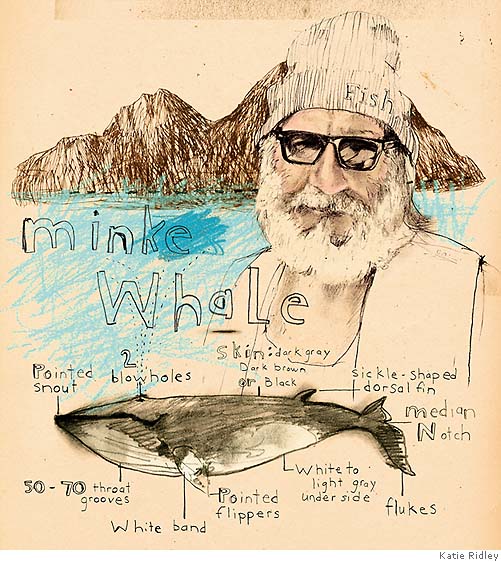 Fish
minke
Whale
Skin: dark gray
Dark brown
or Black
2
blowholes
Pointed
snout
sickle-shaped
dorsal fin
median
Notch
50-70 throat
grooves
White band
Pointed
flippers
White to
light gray
under side
flukes
Katie Ridley